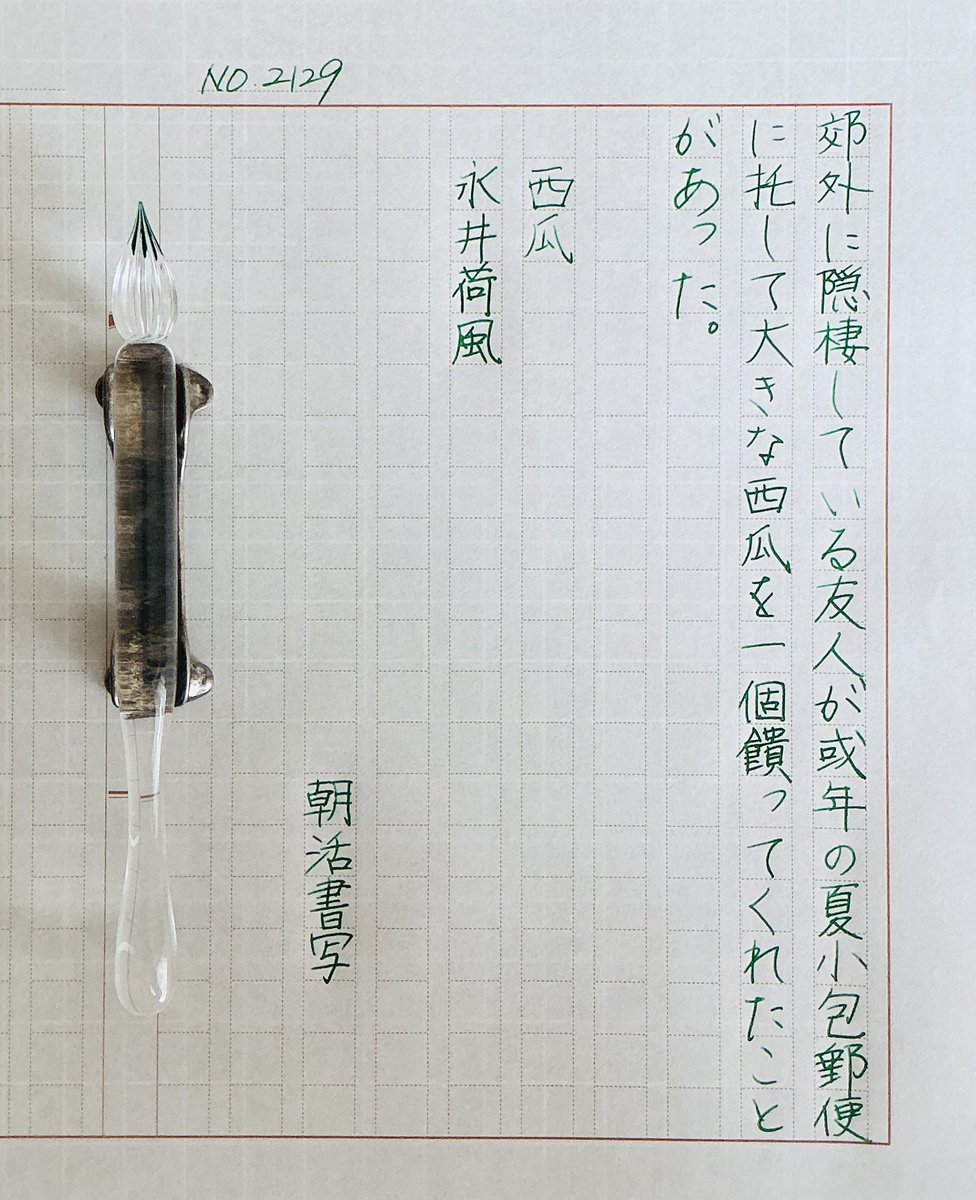 NO.2129
郊外に隠棲している友人が或年の夏小包郵便
に托して大きな西瓜を一個饋ってくれたこと
があった。
西瓜
永井荷風
朝活書写